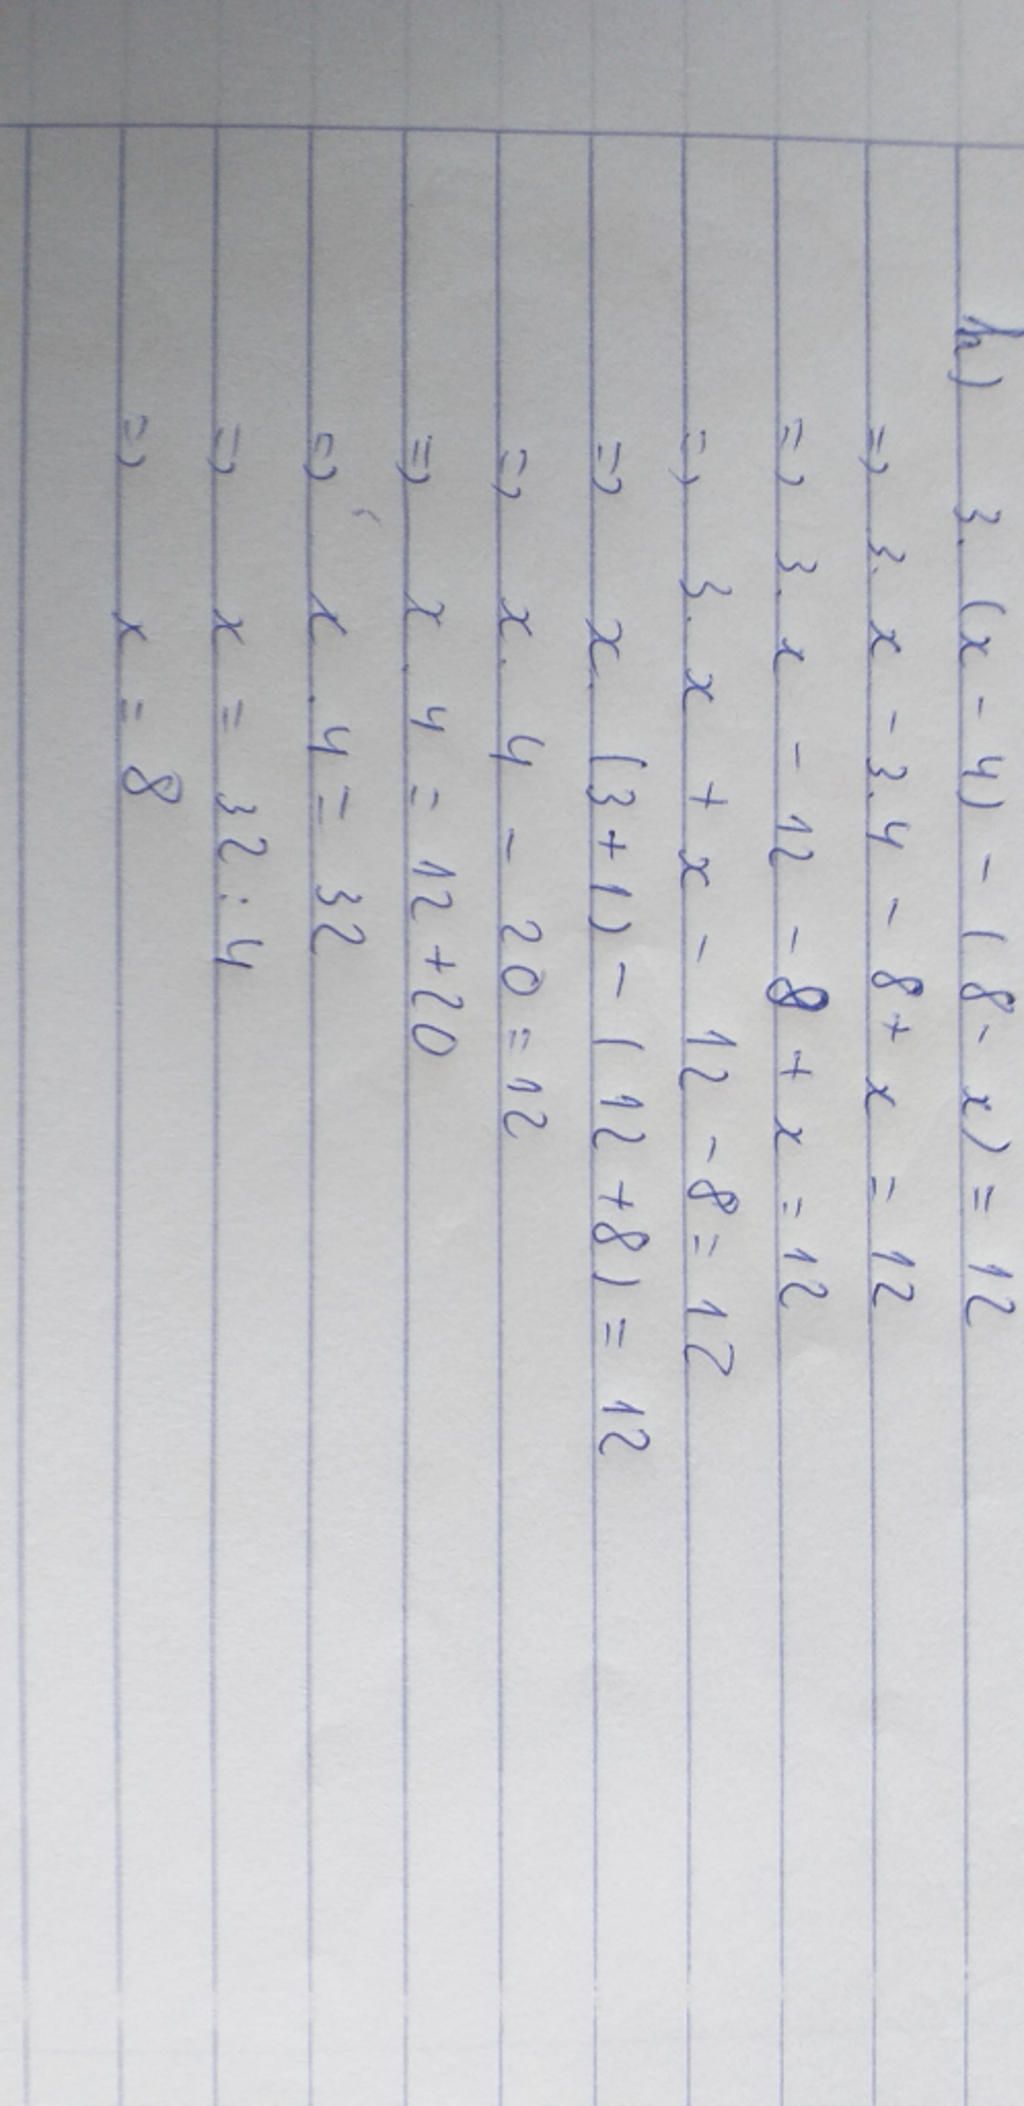 h) 3. (x - 4) - ( 8 - x) = 12
=> 3. x - 3.4 - 8 + x = 12
=> 3. x - 12 - 8 + x = 12
=> 3. x + x - 12 - 8 = 12
=> x. (3 + 1) - ( 12 + 8) = 12
=> x. 4 - 20 = 12
=> x. 4 = 12 + 20
=> x. 4 = 32
=> x = 32 : 4
=> x = 8